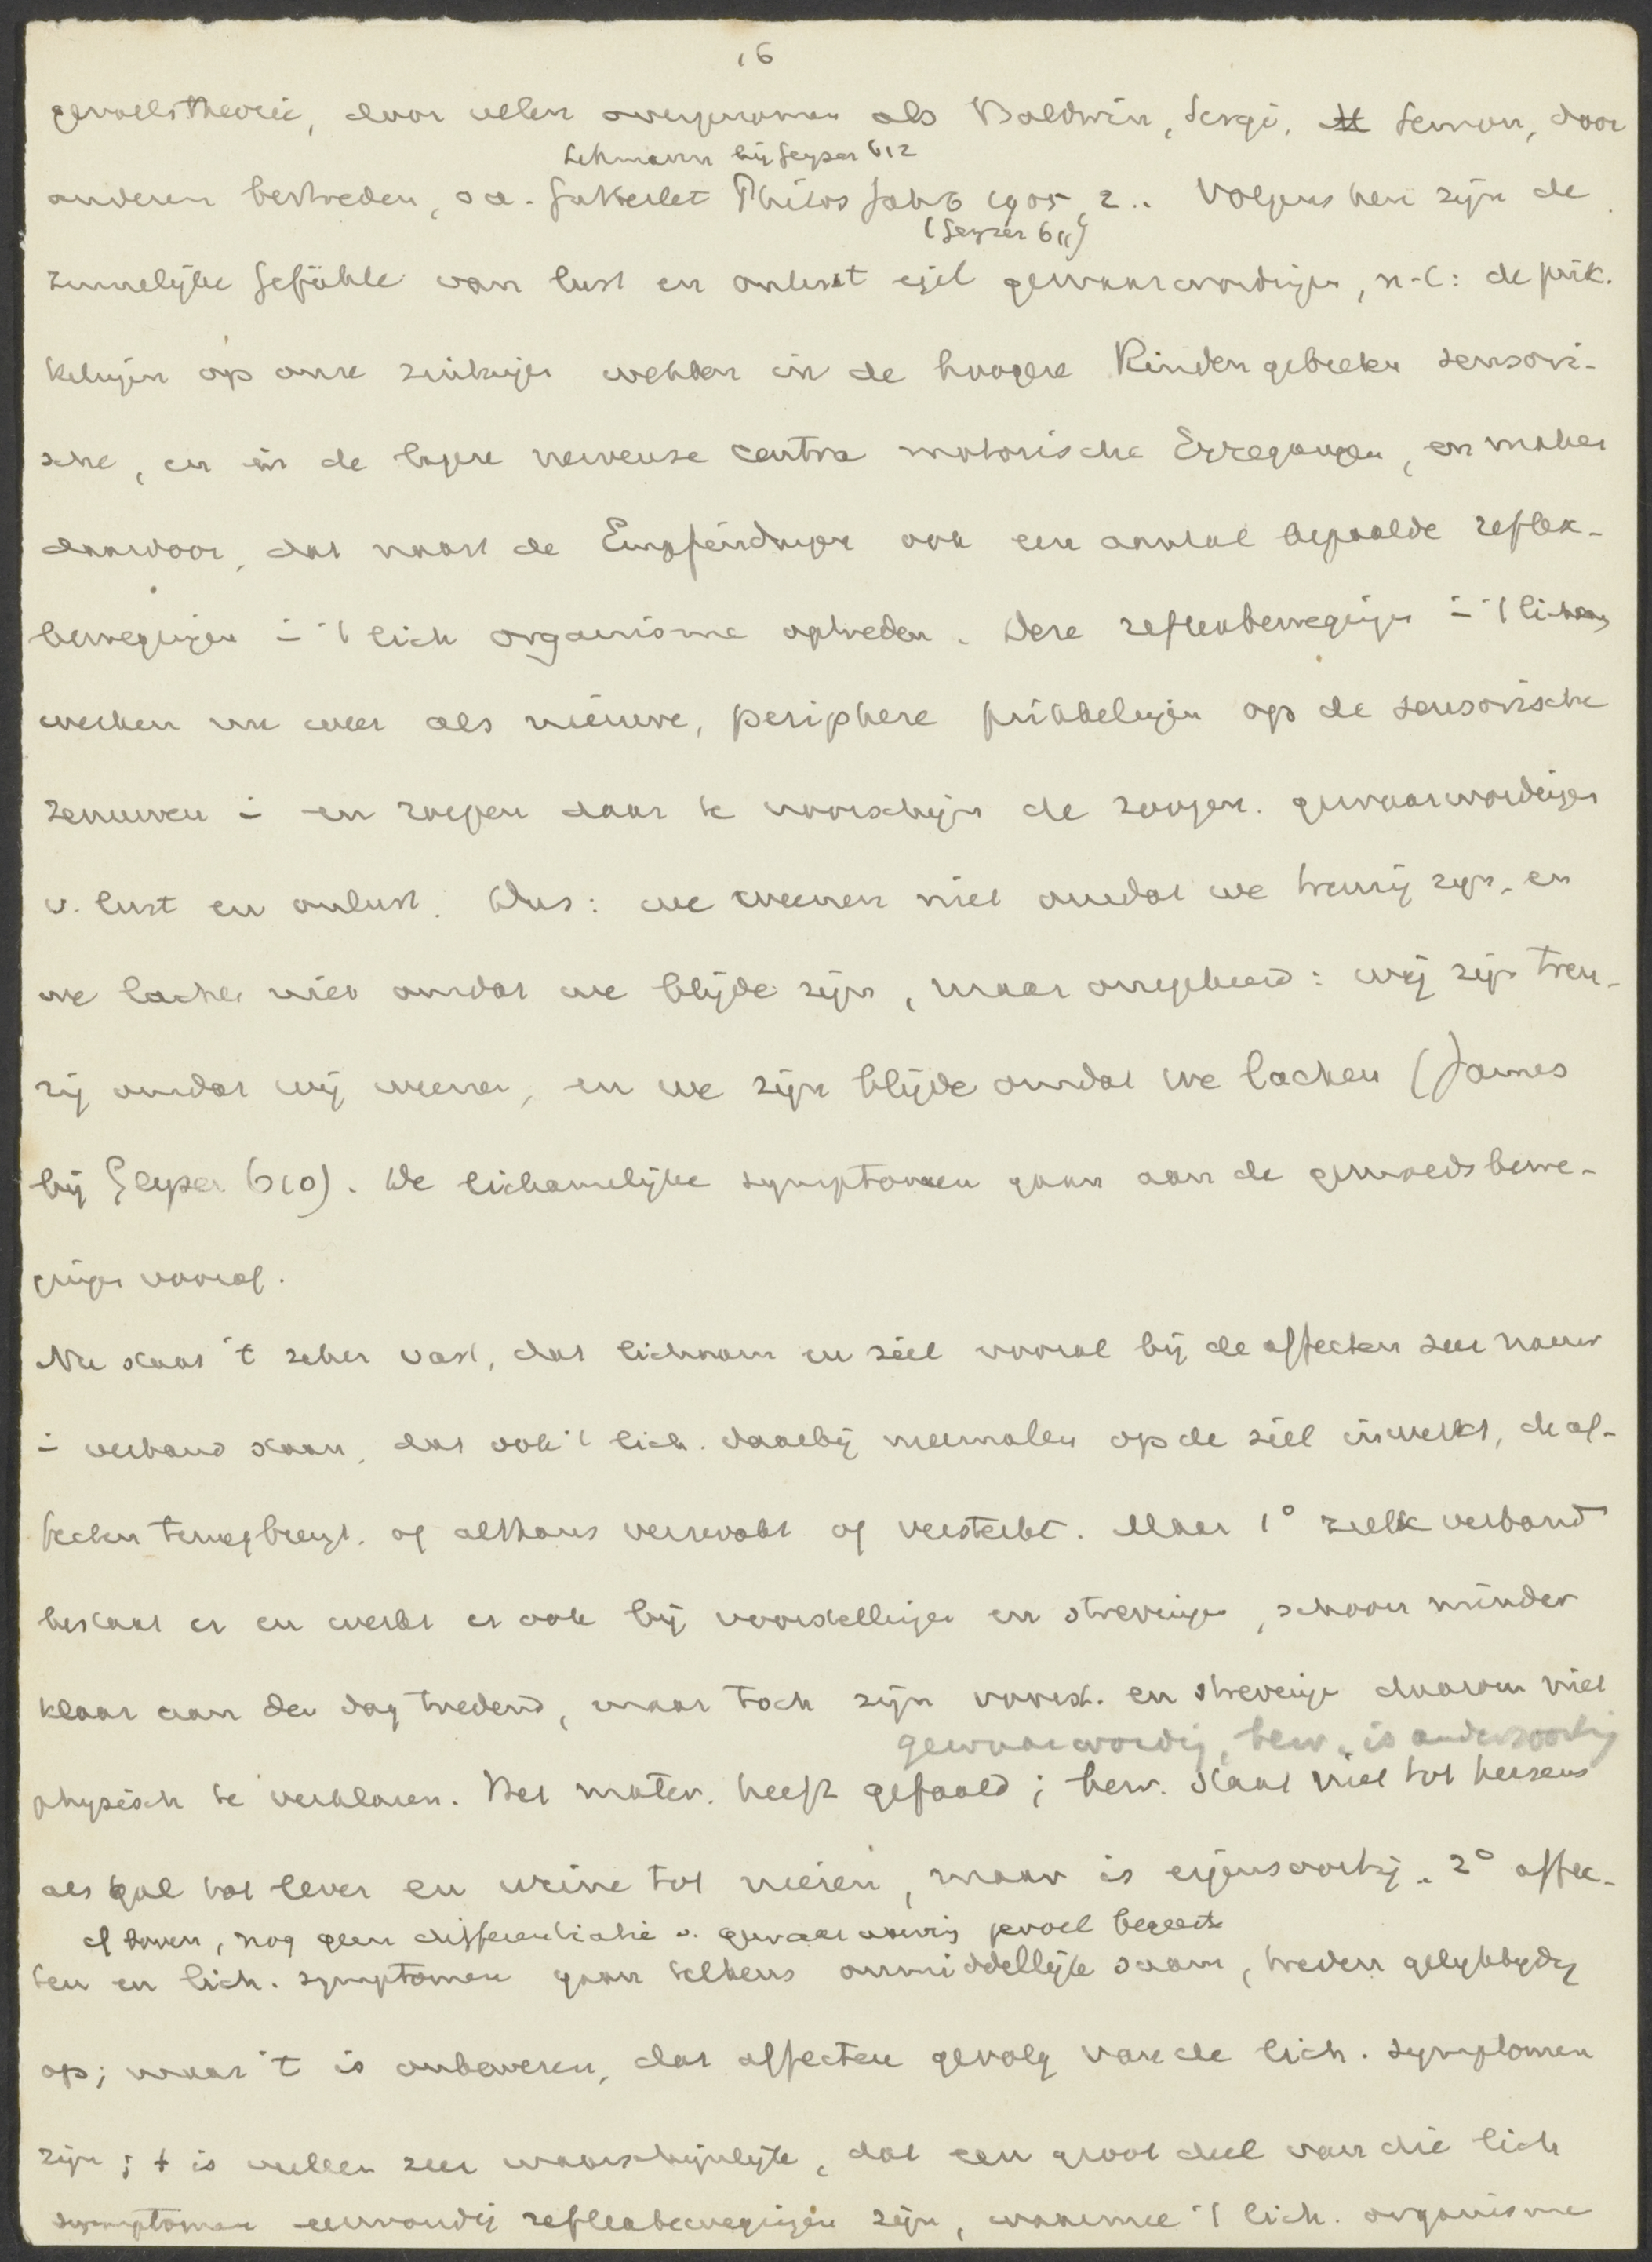 16
gevoelstheorie, door velen overgenomen als Baldwin, Sergi, Semon, door
Lehmann bij Geyser 612
anderen bestreden, o a. Gutberlet Philos Jahrb 1905, 2.. Volgens hen zijn de
(Geyser 611)
zinnelijke Gefühle van lust en onlust eigl gewaarwordingen, n.l: de prik-
kelingen op onze zintuigen wekken in de hoogere Rindengebieten sensori-
sche, en in de lagere nerveuse centra motorische Erregungen, en maken
daardoor, dat naast de Empfindungen ook een aantal bepaalde reflex-
bewegingen i 't lich organisme optreden. Deze reflexbewegingen i 't lichaam
werken nu weer als nieuwe, periphere prikkelingen op de sensorische
zenuwen i en roepen daar te voorschijn de zoogen. gewaarwordingen
v. lust en onlust. Dus: we weenen niet omdat we treurig zijn, en
we lachen niet omdat we blijde zijn, maar omgekeerd: wij zijn treu-
rig omdat wij weenen, en we zijn blijde omdat we lachen (James
bij Geyser 610). De lichamelijke symptomen gaan aan de gemoedsbewe-
gingen vooraf.
Nu staat 't zeker vast, dat lichaam en ziel vooral bij de affecten zeer nauw
i verband staan, dat ook 't lich. daarbij meermalen op de ziel inwerkt, de af-
fecten teweegbrengt. of althans verzwakt of versterkt. Maar 1° zulk verband
bestaat er en werkt er ook bij voorstellingen en strevingen, schoon minder
klaar aan den dag tredend, maar toch zijn voorst. en strevingen daarom niet
gewaarwording, bew. is andersoortig
physisch te verklaren. Het mater. heeft gefaald; bew. staat niet tot hersens
als gal tot lever en urine tot nieren, maar is eigensoortig. 2° affec-
cf boven, nog geen differentiatie v. gewaarwording gevoel begeerte
ten en lich. symptomen gaan telkens onmiddellijk saam, treden gelijktijdig
op; maar 't is onbewezen, dat affecten gevolg van de lich. symptomen
zijn; t is zeer waarschijnlijk, dat een groot deel van die lich
symptomen eenvoudig reflexbewegingen zijn, waarmee 't lich. organisme